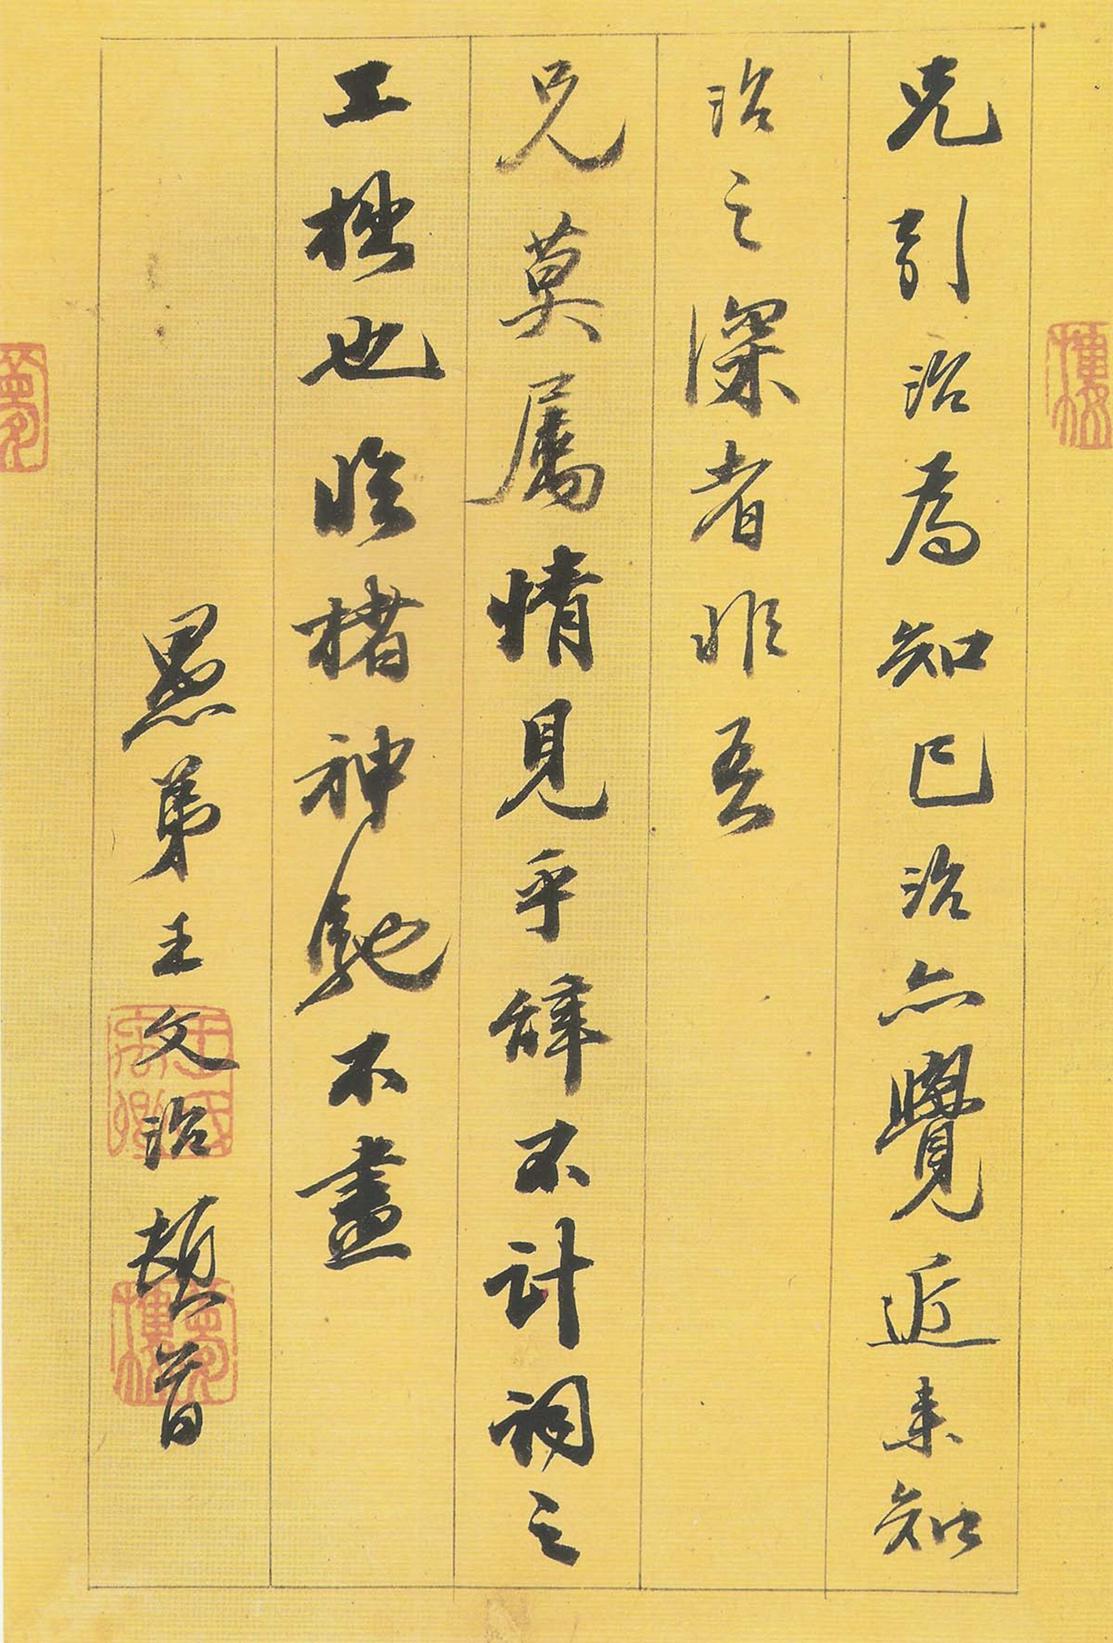 兄引治為知己治亦覺近來知
治之深者非吾
兄莫屬情見乎辭不計詞之
工拙也臨楮神馳不盡
愚弟王文治頓首